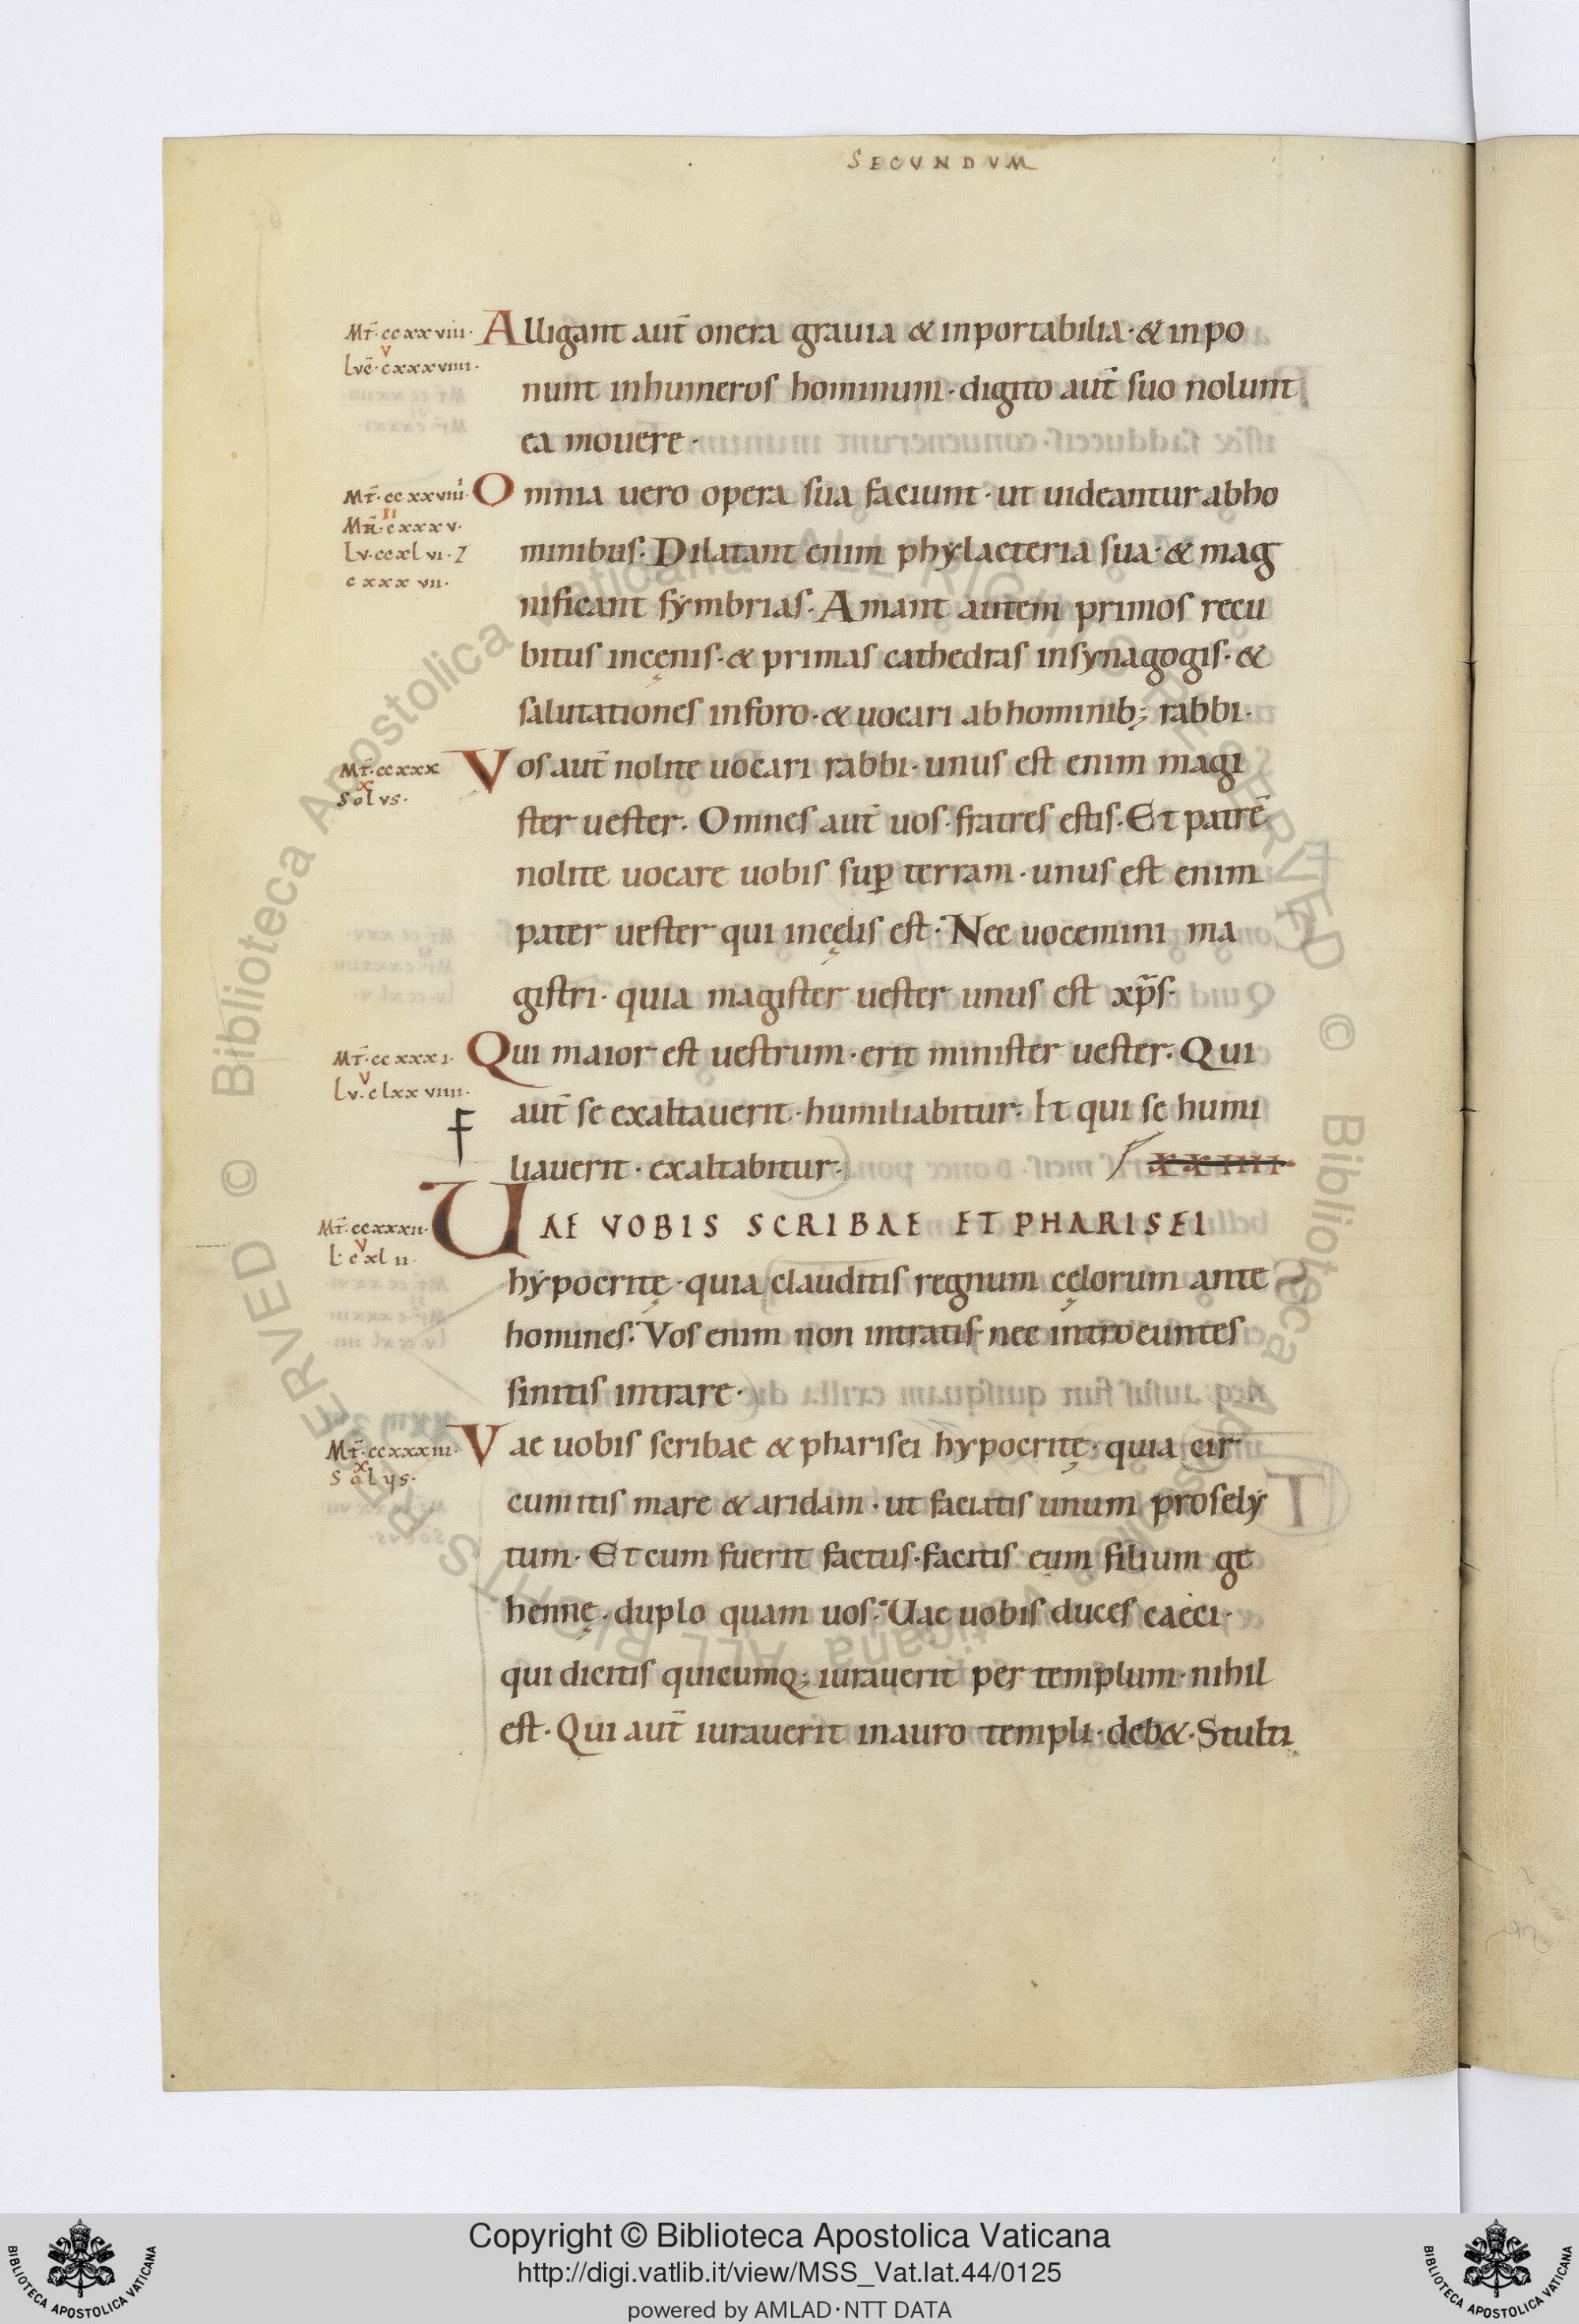 SECUNDVM
Mt̄·ccxxviii·
v
lvc̄·cxxxviiii·
Alligant aut̄ onera grauia & inportabilia·& inpo
nunt inhumeros hominum·digito aut̄ suo nolunt
ea mouere·
Mt̄·ccxxviiii·
II
MR̄·cxxxv·
Lv·ccxlvi·7
cxxxvii·
Omnia uero opera sua faciunt·ut uideantur abho
minibus·Dilatant enim phylacteria sua·& mag
nificant fymbrias·Amant autem primos recu
bitus incęnis·& primas cathedras insynagogis·&
salutationes inforo·& uocari ab hominib; rabbi·
Mt̄·ccxxx
x
Solvs·
Vos aut̄ nolite uocari rabbi·unus est enim magi
ster uester·Omnes aut̄ uos·fratres estis·Et patrē
nolite uocare uobis suꝑ terram·unus est enim
pater uester qui incęlis est·Nec uocemini ma
gistri·quia magister uester unus est xp̄s·
Mt̄·ccxxxi·
v
Lv·clxxviiii·
Qui maior est uestrum·erit minister uester·Qui
aut̄ se exaltauerit·humiliabitur·Et qui se humi
liauerit·exaltabitur·
XXIIII·
Mt̄·ccxxxii·
v
L·cxlii·
UAE VOBIS SCRIBAE ET PHARISEI
hypocritę·quia clauditis regnum cęlorum ante
homines·Vos enim non intratis·nec introeuntes
sinitis intrare·
Mt̄·ccxxxiii·
x
Solus·
Vae uobis scribae & pharisei hypocritę·quia cir
cumitis mare & aridam·ut faciatis unum prosely
T
tum·Et cum fuerit factus·facitis eum filium ge
hennę·duplo quam uos·Uae uobis duces caeci·
qui dicitis quicumq; iurauerit per templum·nihil
est·Qui aut̄ iurauerit inauro templi·deb&·Stulti
Copyright © Biblioteca Apostolica Vaticana
http://digi.vatlib.it/view/MSS_Vat.lat.44/0125
powered by AMLAD·NTT DATA
BIBLIOTECA APOSTOLICA VATICANA
BIBLIOTECA APOSTOLICA VATICANA